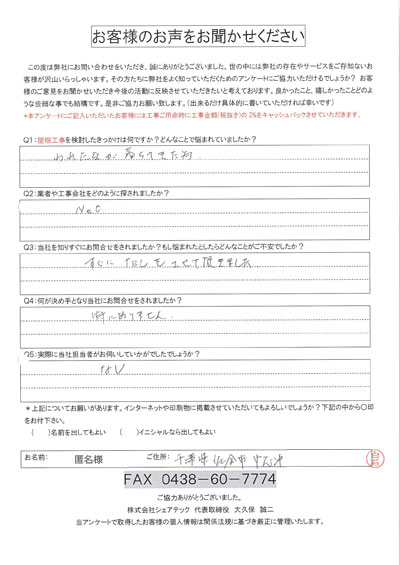 お客様のお声をお聞かせください
この度は弊社にお問い合わせをいただき、誠にありがとうございました。世の中には弊社の存在やサービスをご存知ないお
客様が沢山いらっしゃいます。その方たちに弊社をよく知っていただくためのアンケートにご協力いただけるでしょうか? お客
様のご意見をお聞かせいただき今後の活動に反映させていただきたいと考えております。良かったこと、嬉しかったことどのよ
うな些細な事でも結構です。是非ご協力お願い致します。(出来るだけ具体的に書いていただければ幸いです)
*本アンケートにご記入いただいたお客様には工事ご用命時に工事金額(税抜き)の 2%をキャッシュバックさせていただきます。
Q1:屋根工事を検討したきっかけは何ですか?どんなことで悩まれていましたか?
われたなが 落ちてきた為
Q2:業者や工事会社をどのように探されましたか?
Net
Q3:当社を知りすぐにお問合せをされましたか?もし悩まれたとしたらどんなことがご不安でしたか?
すぐに をさせて頂きました
Q4:何が決め手となり当社にお問合せをされましたか?
特にありません
Q5:実際に当社担当者がお伺いしていかがでしたでしょうか?
なし
*上記についてお願いがあります。インターネットや印刷物に掲載させていただいてもよろしいでしょうか?下記の中から〇印
をお付け下さい。
( )名前を出してもよい ( )イニシャルなら出してもよい
お名前: 匿名様 ご住所: 千葉県
FAX 0438-60-7774
ご協力ありがとうございました。
株式会社シェアテック 代表取締役 大久保 誠二
当アンケートで取得したお客様の個人情報は関係法規に基づき厳正に管理いたします。